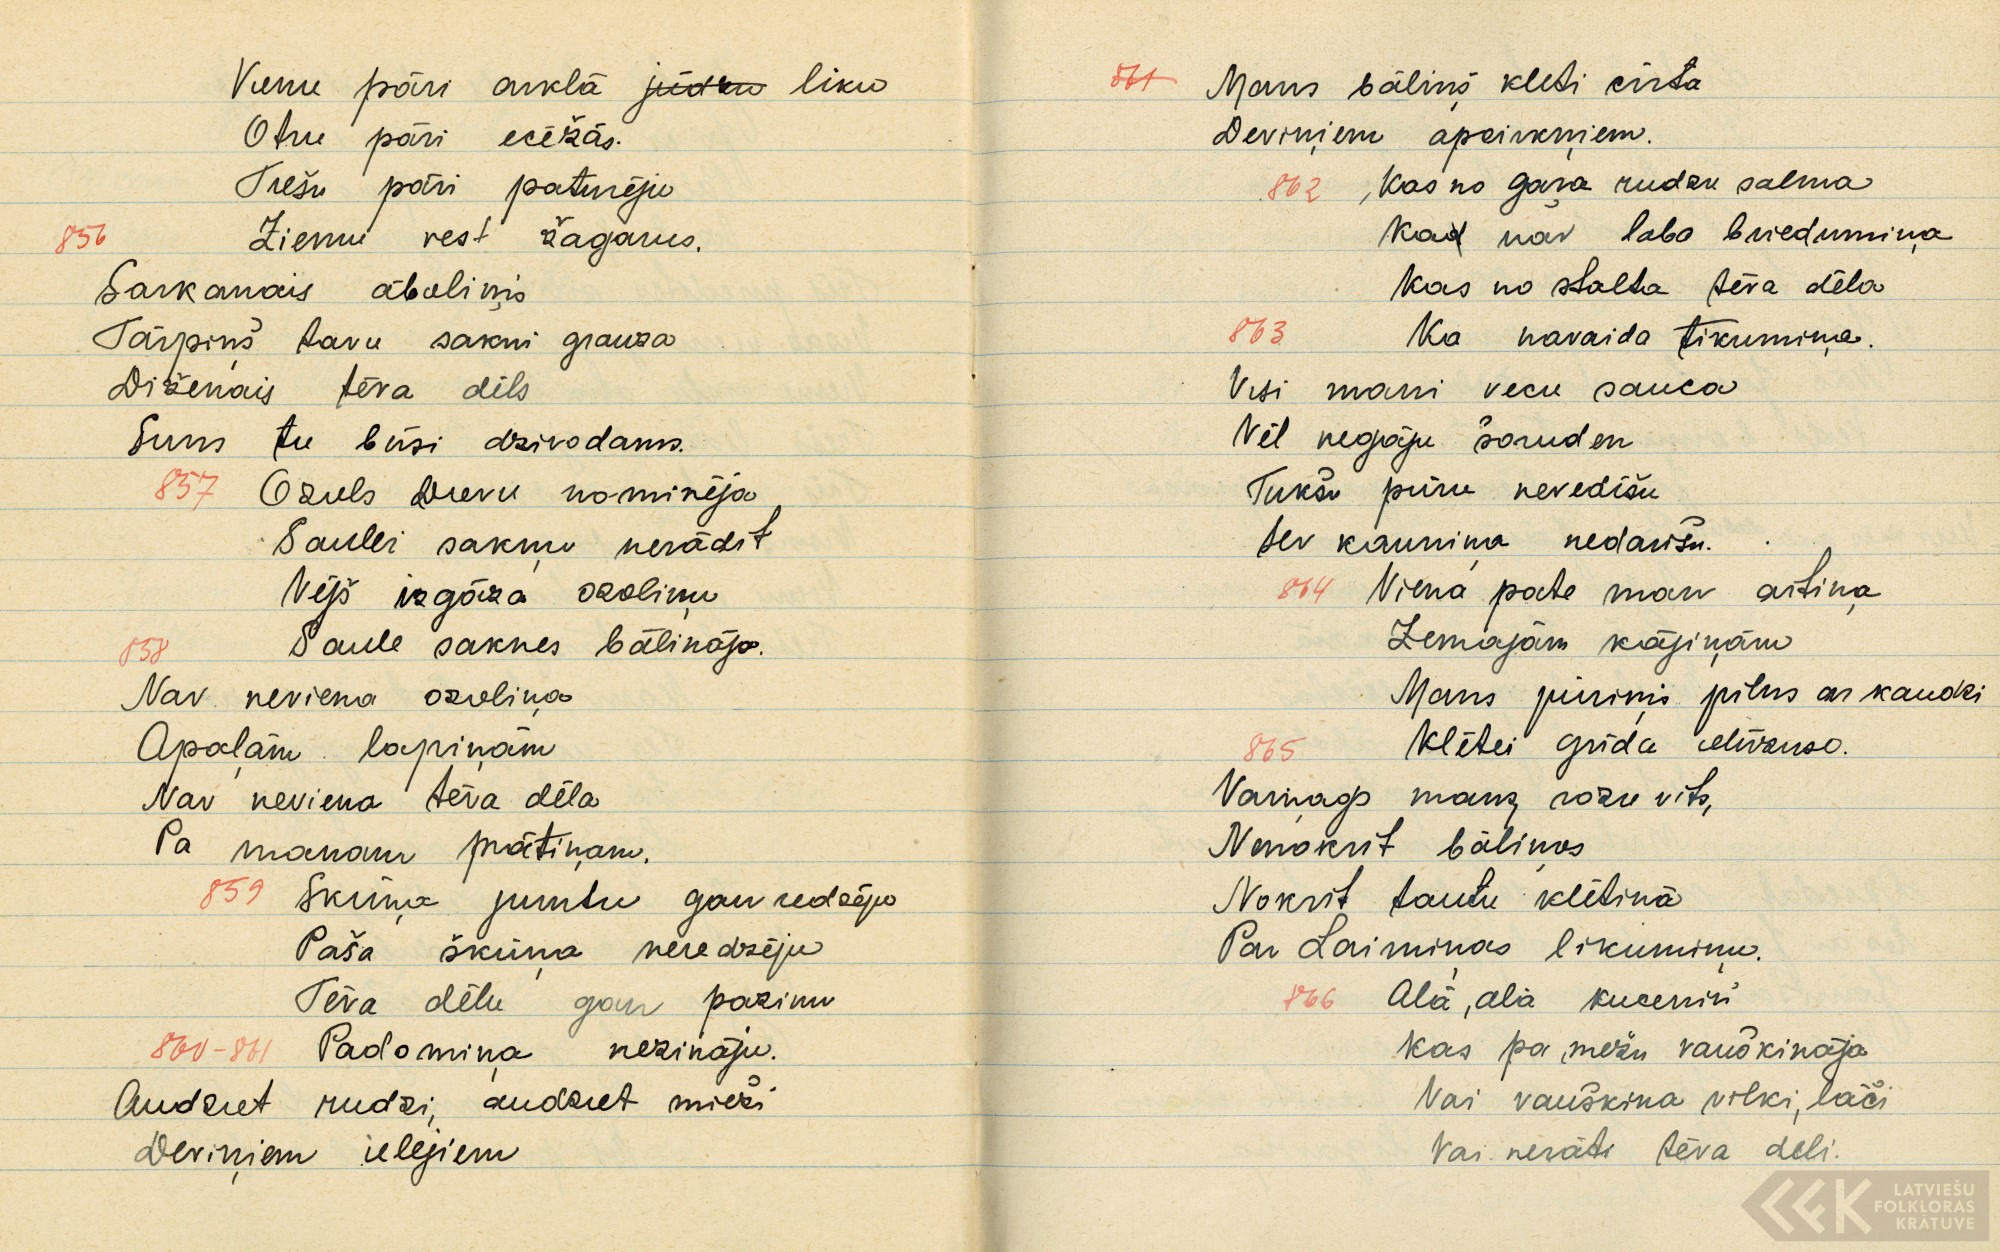 Vienu pāri arklā jūdzu liku
Otru pāri ecēžās.
Trešu pāri paturēju
856 Ziemu vest žagarus.
Sarkanais āboliņis
Tārpiņš tavu sakni grauza
Diženais tēva dēls
Suns tu būsi dzivodams.
857 Ozuls Dievu no-minēja
Saulei sakņu nerādīt
Vējš izgāza ozoliņu
858 Saule saknes bālināja.
Nav neviena ozoliņa
Apaļām lapiņām
Nav neviena tēva dēla
Pa manam prātiņam.
859 Skūņa jumtu gan redzēju
Paša škūņa neredzēju
Tēva dēlu gan pazinu
860-861 Padomiņa nezināju.
Audziet rudzi, audziet mieži
Deviņiem ielejiem
861 Mans bāliņš klēti cirta
Deviņiem apcirkņiem.
862 Kas no gara rudzu salma
Kad nāv laba briedumiņa
Kas no stalta tēva dēla
863 Ka navaida tikumiņa.
Visi mani vecu sauca
Vēl negāju šoruden
Tukšu pūru nevedīšu
tev kauniņa nedarīšu.
864 Viena pate man aitiņa
Zemajām kājiņām
Mans pūriņis pilns ar kaudzi
865 Klētei grīda ielūzuse.
Vaiņags manz rozu vīts,
Nenokrīt bāliņos
Nokrīt tautu klētiņā
Par Laimiņas likumiņu.
866 Alā, alā kuceniņ
Kas pa mežu vauškināja
Vai vauškina vilki, lāči
Vai nerāte tēva dēli.
LATVIEŠU
FOLKLORAS
KRĀTUVE